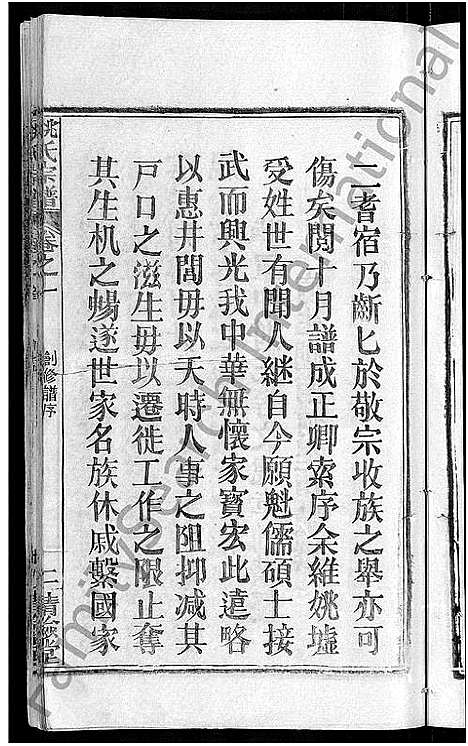 二耆宿乃齗匕於敬宗收族之舉亦可
傷矣閱十月譜成正卿索序余維姚墟
受姓世有聞人継自今願魁儒碩士接
武而興光我中華無懷家寳宏此遠略
以惠井閭毋以天時人事之阻抑减其
戸口之滋生毋以遷徙工作之限止奪
其生机之暢遂世家名族休戚繫國家
姚氏宗譜
卷之一
創修譜序
二
Familysearch International